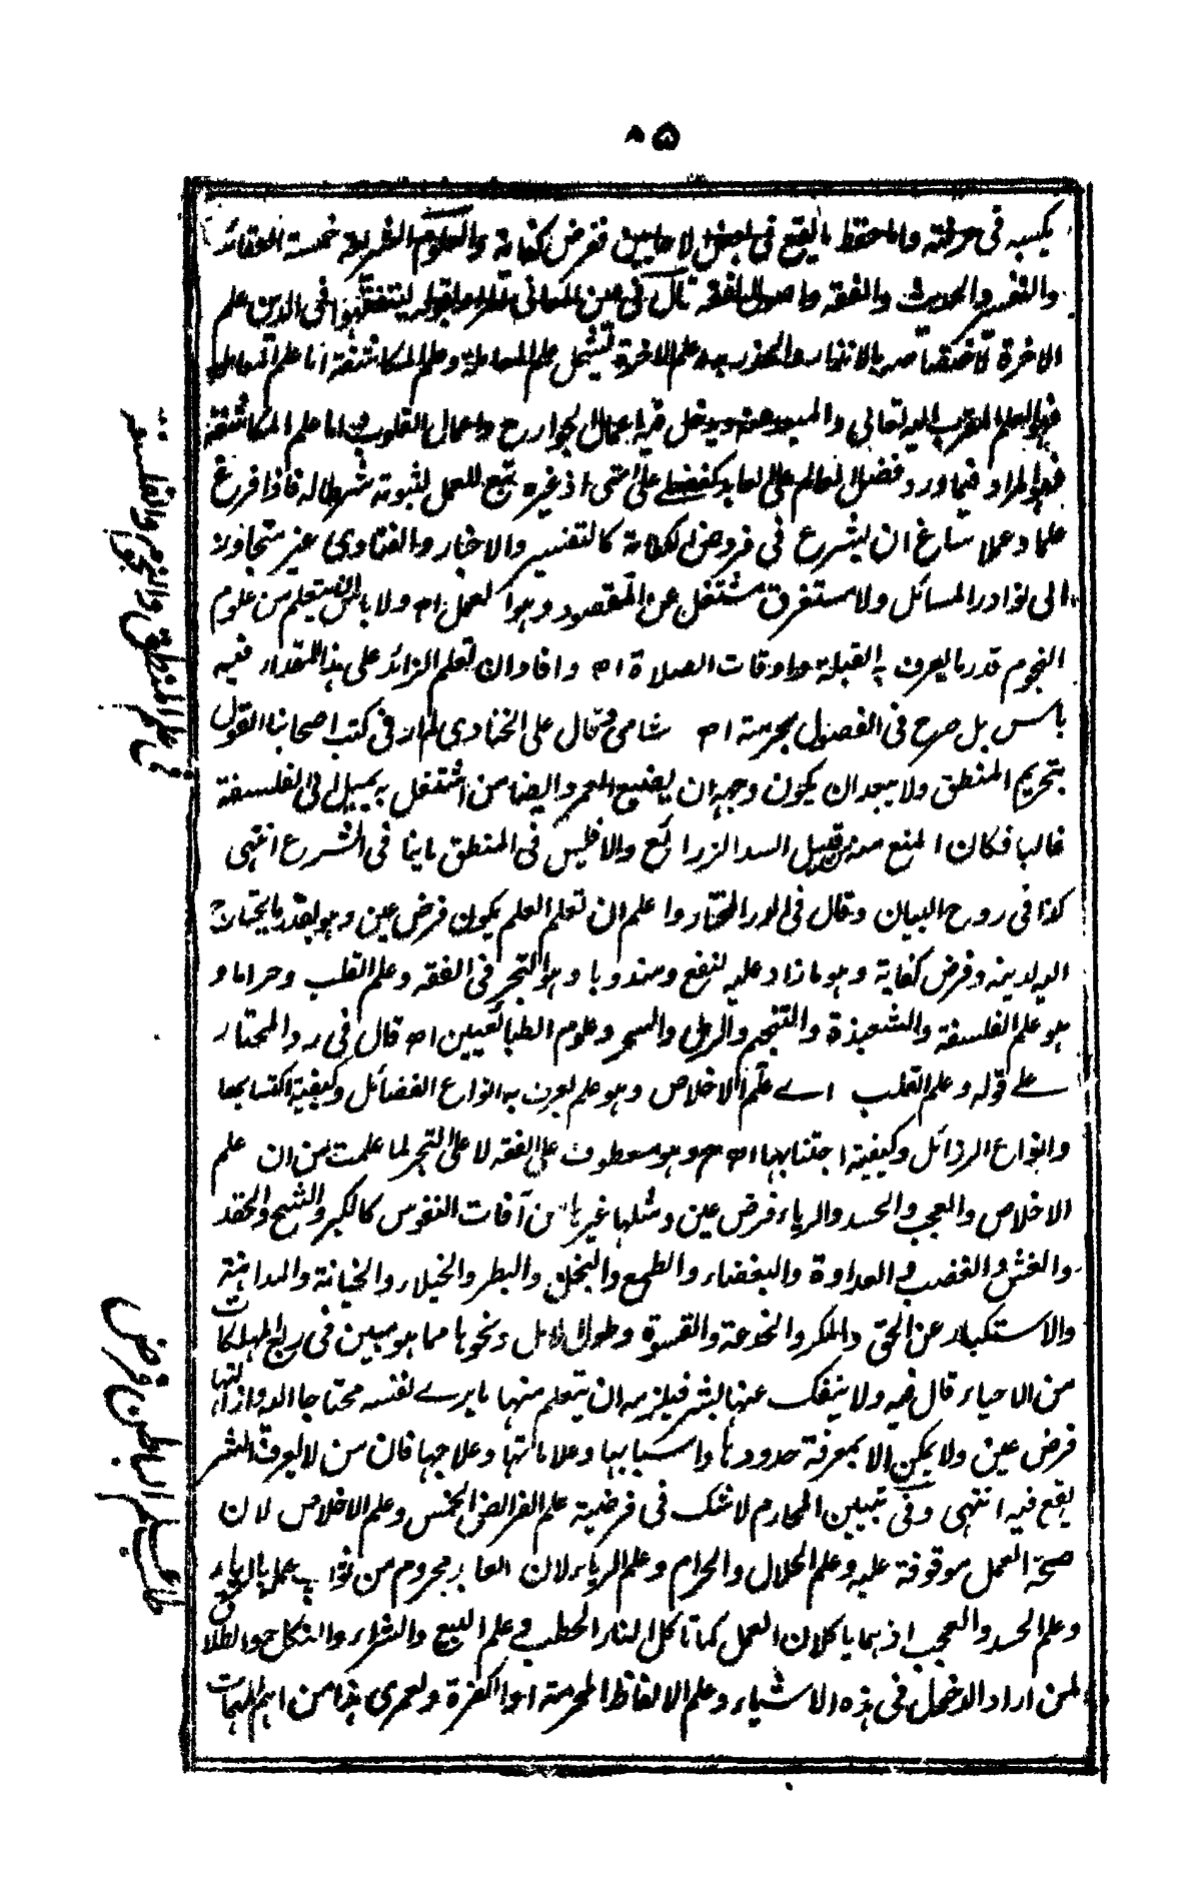 ٨٥
يكسبه في حرفته واما حفظ ما يقع في بعض الاحايين ففرض كفاية والعلوم الشريعة خمسة العقائد
والتفسير والحديث والفقه واصول الفقه قال في عين المعاني المراد بقوله ليتفقهوا في الدين علم
الاخرة لاختصاصه بالانذار والحذر به وعلم الاخرة يشمل علم المعاملة وعلم المكاشفة اما علم المعاملة
فهو العلم المقرب اليه تعالى والمبعد عنه ويدخل فيه اعمال الجوارح واعمال القلوب اما علم المكاشفة
فهو المراد فيما ورد فضل العالم على العابد كفضلي على امتي اذ غيره تبع للعمل لثبوته شرطا له فاذا فرغ
علما وعملا ساغ ان يشرع في فروض الكفاية كالتفسير والاخبار والفتاوى غير متجاوز
الى نوادر المسائل ولا مستغرق مشتغل عن المقصود وهو العمل اه ولا باس ان يتعلم من علوم
النجوم قدر ما يعرف به القبلة واوقات الصلاة اه وافاد ان تعلم الزائد على هذا المقدار فيه
باس بل صرح في الفصول بحرمته اه شامي وقال على الخنادى لم ار في كتب اصحابنا القول
بتحريم المنطق ولا يبعد ان يكون وجهه ان يضيع العمر وايضا من اشتغل به يميل الى الفلسفة
غالبا فكان المنع منه من قبيل السد الزرائع والا فليس في المنطق ما ينا في الشرع انتهى
كذا في روح البيان وقال في الدر المختار واعلم ان تعلم العلم يكون فرض عين وهو بقدر ما يحتاج
اليه لدينه وفرض كفاية وهو ما زاد عليه لنفع ومندوبا وهو التبحر في الفقه وعلم القلب وحراما و
هو علم الفلسفة والشعبذة والتنجيم والرمل والسحر وعلوم الطبائعيين اه قال في رد المحتار
على قوله وعلم القلب اے علم الاخلاص وهو علم يعرف به انواع الفضائل وكيفية اكتسابها
وانواع الرذائل وكيفية اجتنابها اه ح وهو معطوف على الفقه لا على التبحر لما علمت من ان علم
الاخلاص والعجب والحسد والرياء فرض عين ومثلها غيرها من آفات النفوس كالكبر والشح والحقد
والغش والغضب والعداوة والبغضاء والطمع والبخل والبطر والخيلاء والخيانة والمداهنة
والاستكبار عن الحق والمكر والخدعة والقسوة وطول الامل ونحوها مما هو مبين في ربع المهلكات
من الاحياء قال فيه ولا ينفك عنها بشر فيلزمه ان يتعلم منها ما يرے نفسه محتاجا اليه وازالتها
فرض عين ولا يمكن الا بمعرفة حدودها واسبابها وعلاماتها وعلاجها فان من لا يعرف الشر
يقع فيه انتهى وفي تبيين المحارم لا شك في فرضية علم الفرائض الخمس وعلم الاخلاص لان
صحة العمل موقوفة عليه وعلم الحلال والحرام وعلم الرياء لان العابد محروم من ثواب عمله بالرياء
وعلم الحسد والعجب اذ هما ياكلان العمل كما تاكل النار الحطب وعلم البيع والشراء والنكاح والطلاق
لمن اراد الدخول في هذه الاشياء وعلم الالفاظ المحرمة او المكفرة ولعمرى هذا من اهم المهمات
علم المنطق والنجوم والفلسفة
طلب علم الباطن فرض